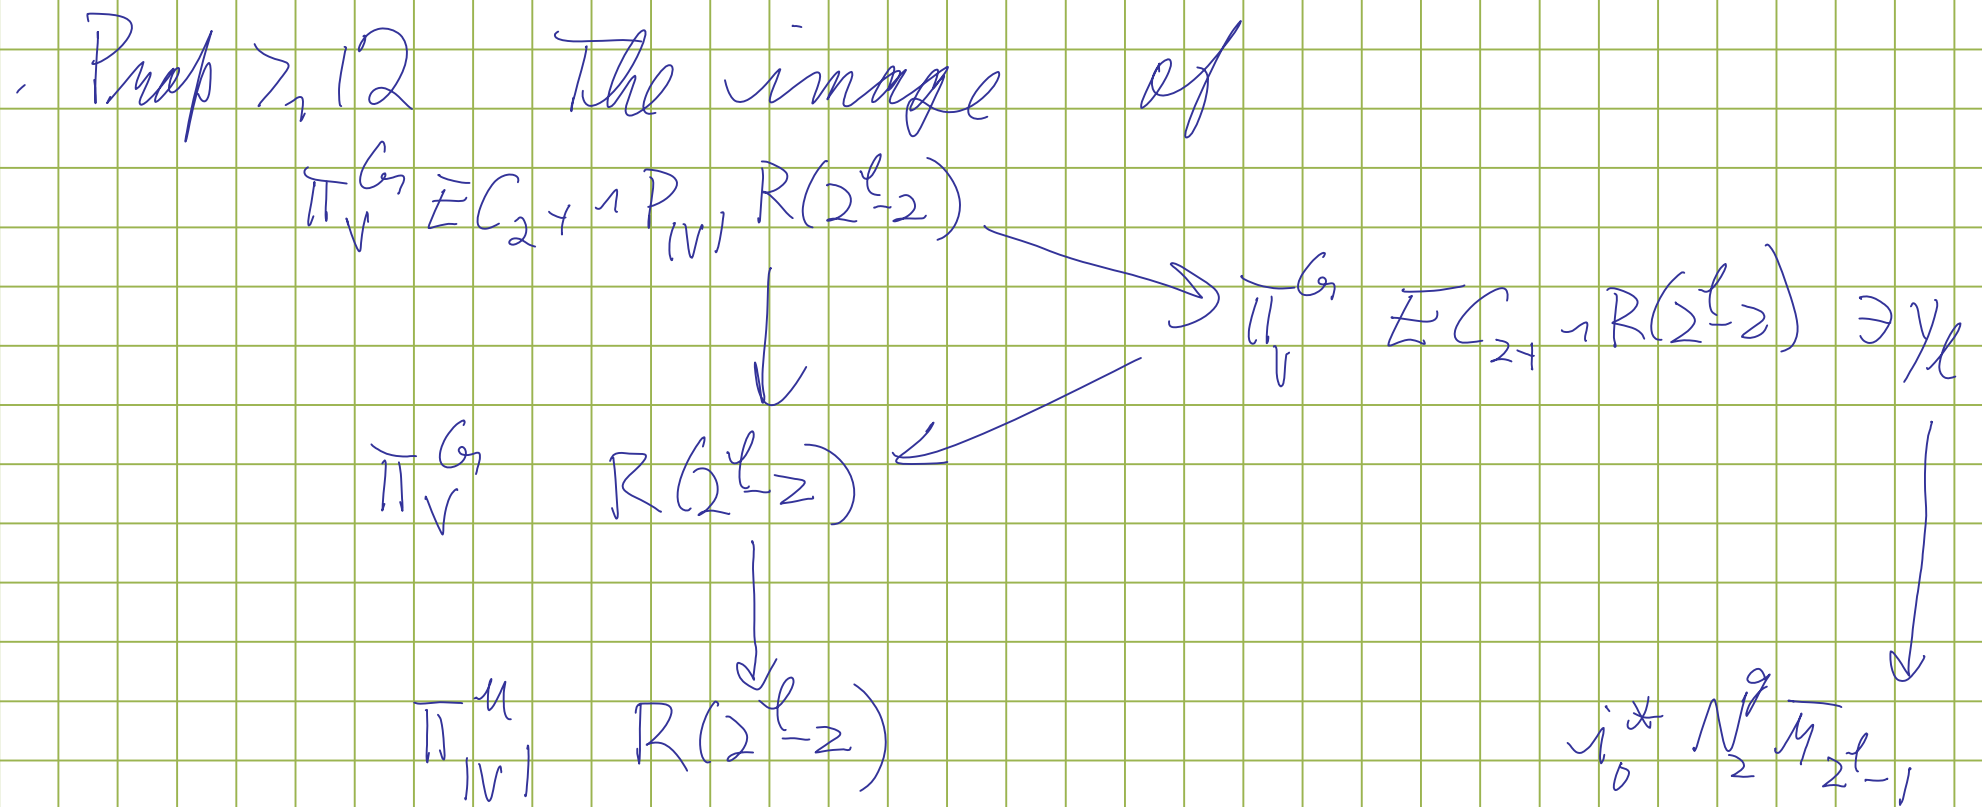 . Prop 7.12 The image of
π_V^G EC_{2+} ∧ P_{|V|} R(2^ℓ-2)
π_V^G EC_{2+} ∧ R(2^ℓ-2) ∋ y_ℓ
π_V^G R(2^ℓ-2)
π_{|V|}^u R(2^ℓ-2)
i_0^* N_2^g r̄_{2^ℓ-1}